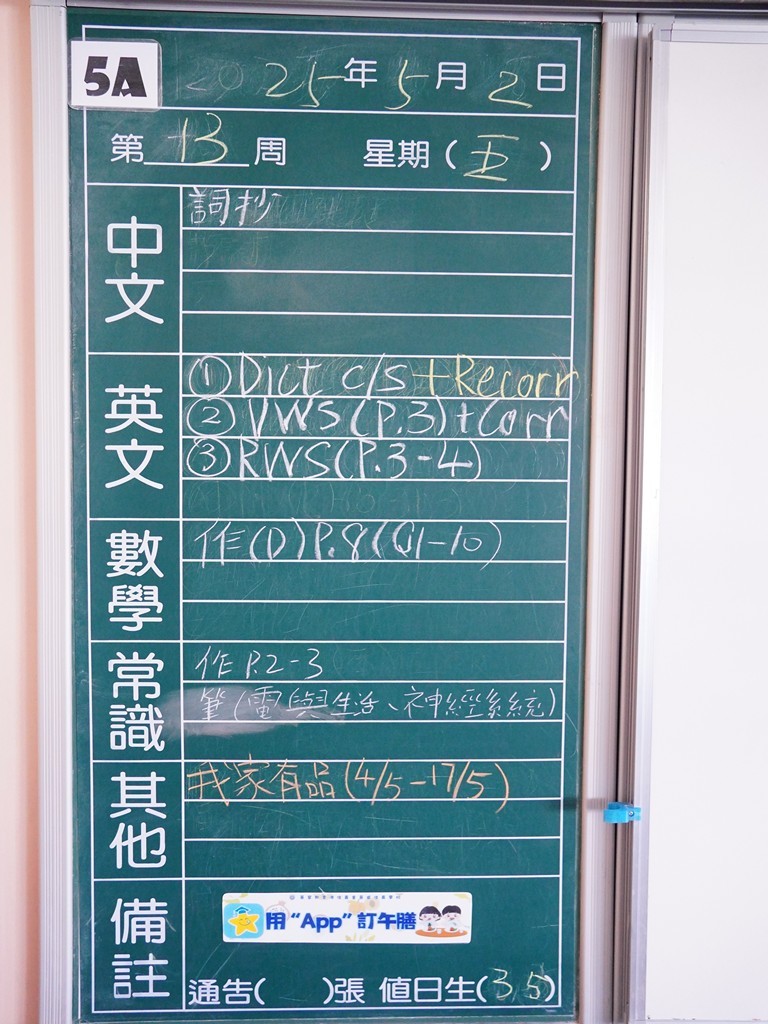 5A
2025年5月2日
第13周 星期(五)
中文
詞抄
英文
①Dict c/s +Recorr
②VWS(P.3)+Corr
③RWS(P.3-4)
數學
作(D)P.8(Q1-10)
常識
作 P.2-3
筆(電與生活、神經系統)
其他
我家有品(4/5-17/5)
備註
用“App”訂午膳
通告( )張 值日生(3 5)